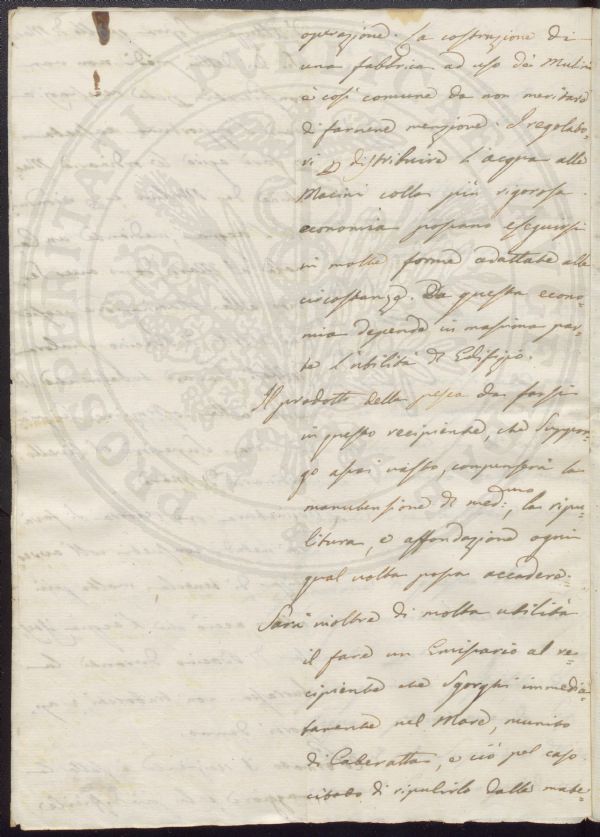 operazione. La costruzione di
una fabbrica ad uso de Mulini
è così comune da non meritare
di farnene menzione. I regolato-
ri p distribuire l'acqua alle
Macini colla più rigorosa
economia possano eseguirsi
in molte forme adattate alle
circostanze. Da questa econo-
mia depende in massima par-
te l'utilità di Edifizio.
Il prodotto della pesca da farsi
in questo recipiente, che suppon-
go assai vasto, compenserà la
manutensione di med.mo, la ripu-
litura, e affondazione ogni
qual volta possa accadere.
Sarà inoltre di molta utilità
il fare un Emissario al re-
cipiente che sgorghi immedia-
tamente nel Mare, munito
di Caberatta, e ciò pel caso
citato di ripulirlo dalle mate-
PROSPERITATI PUBLICAE